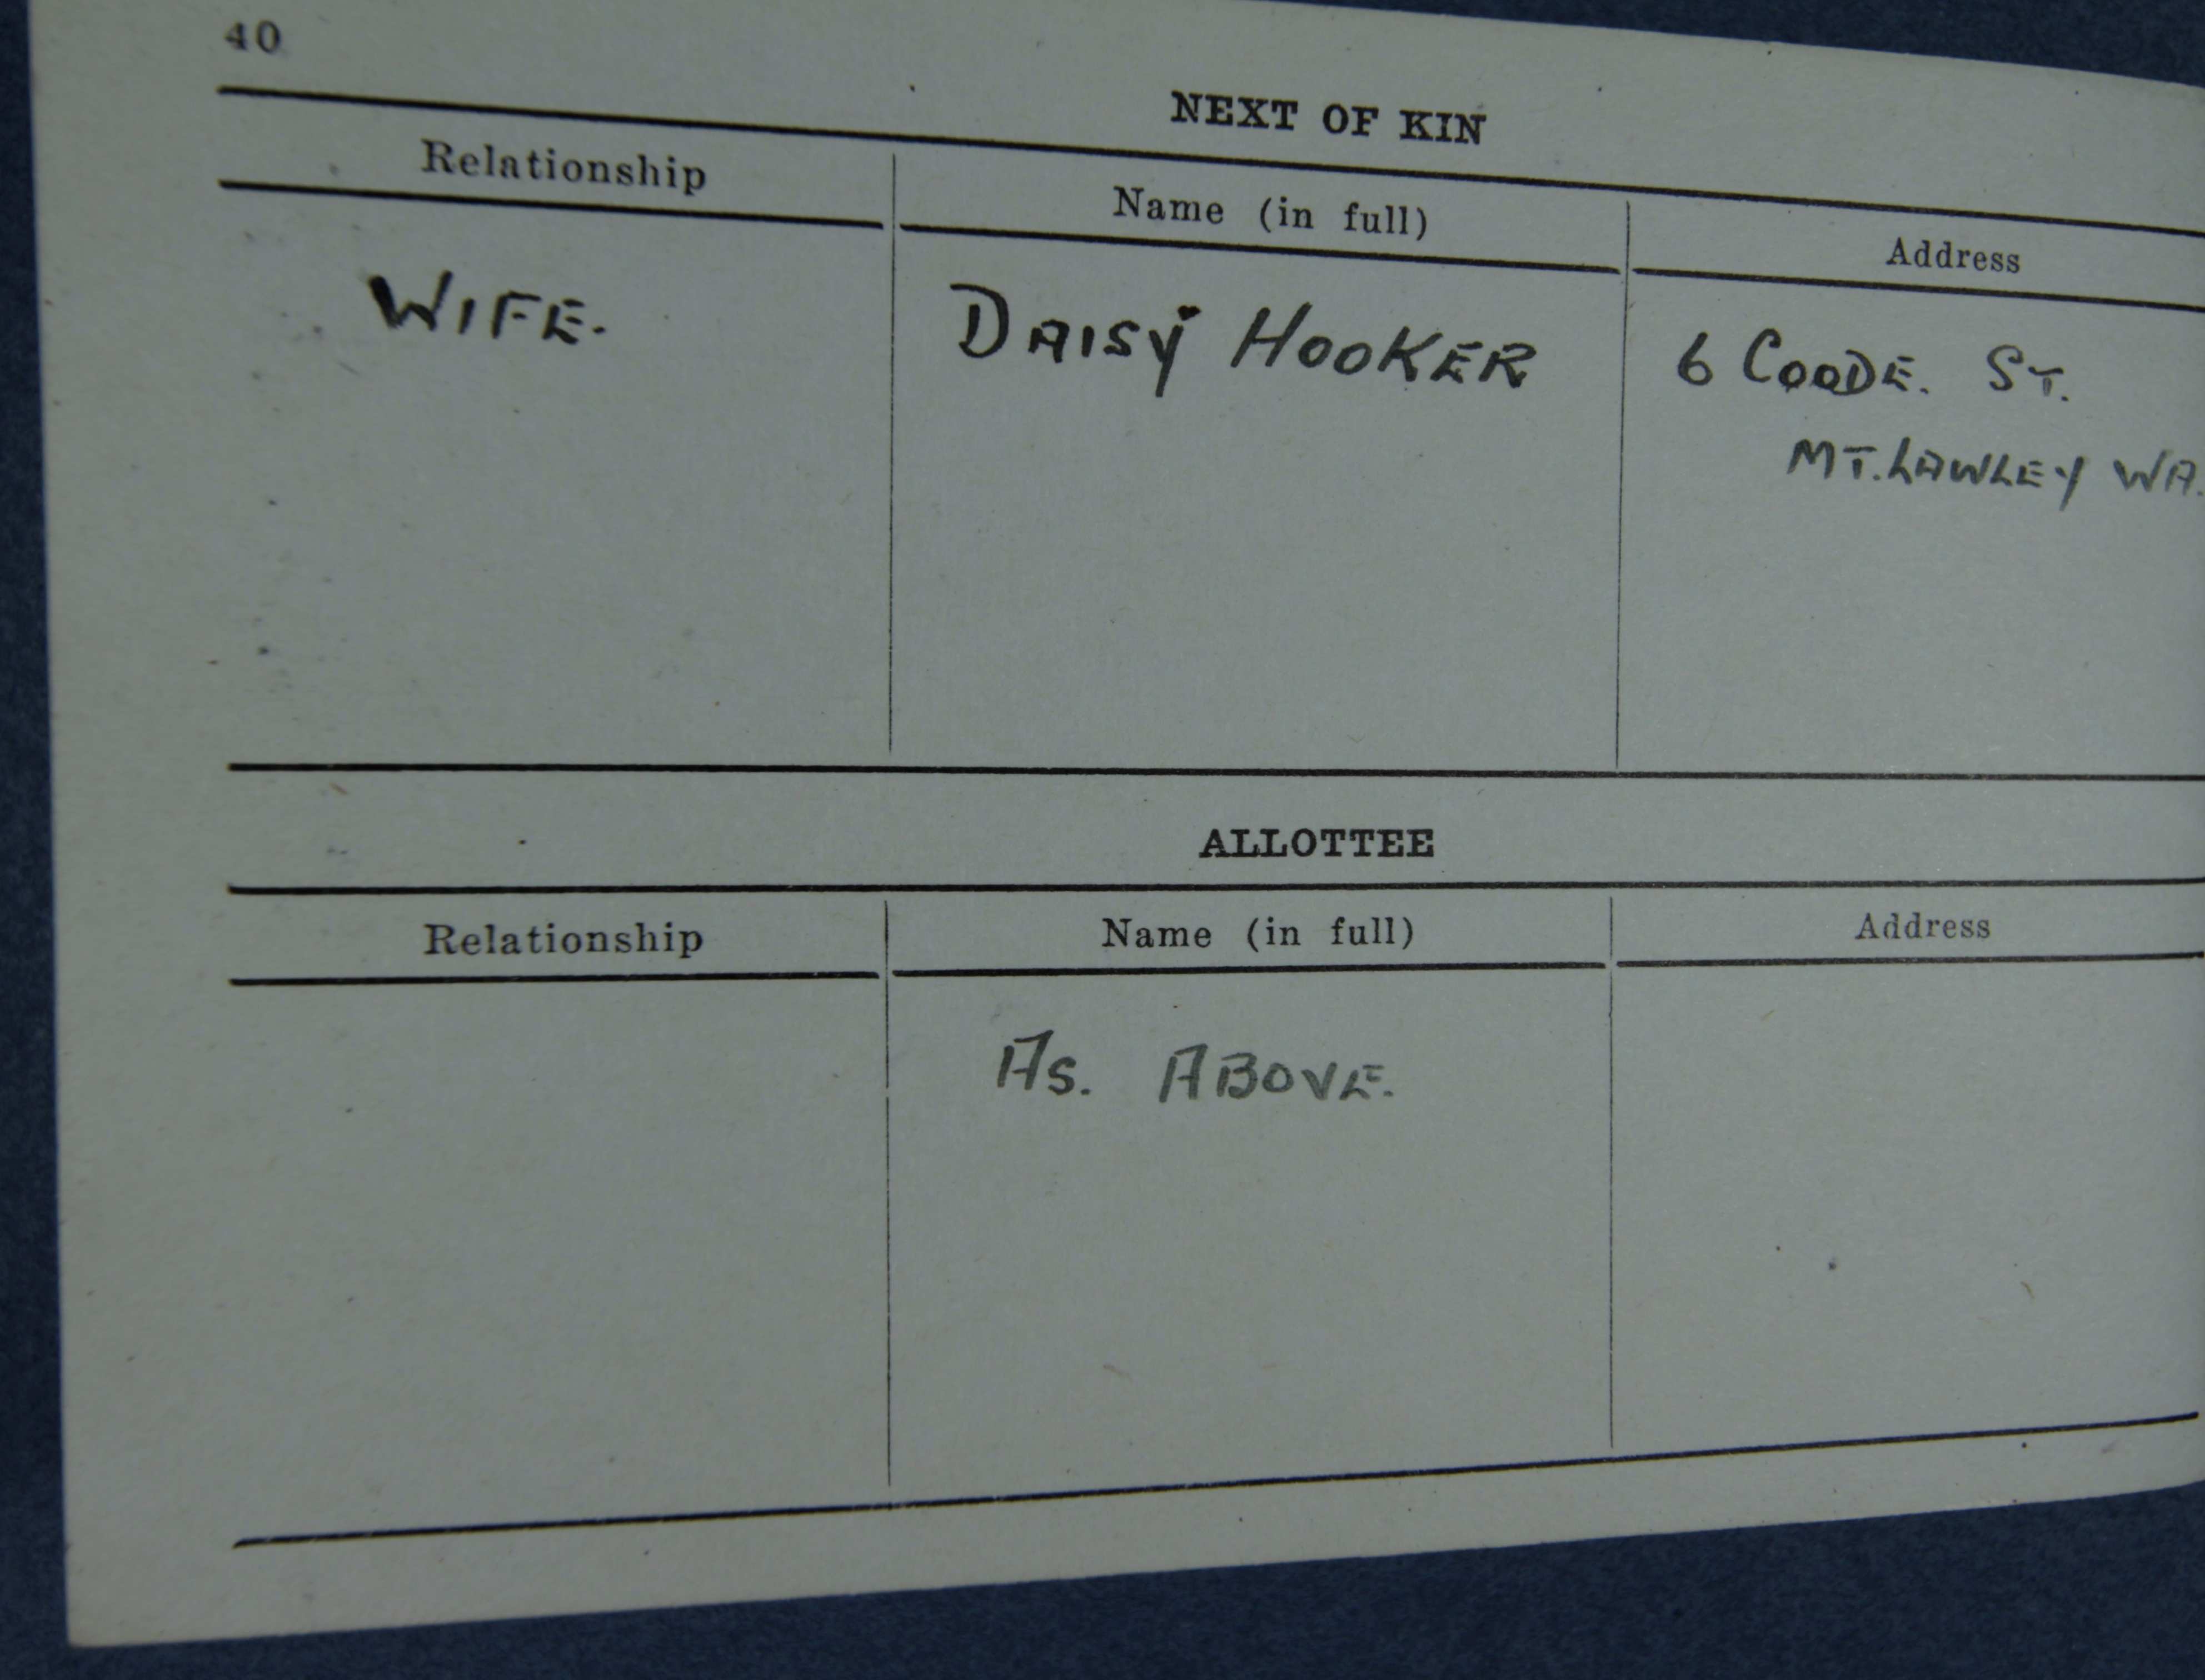 40
NEXT OF KIN
Relationship Name (in full) Address
WIFE. DAISY HOOKER 6 COODE. ST.
MT. LAWLEY WA.
ALLOTTEE
Relationship Name (in full) Address
AS. ABOVE.